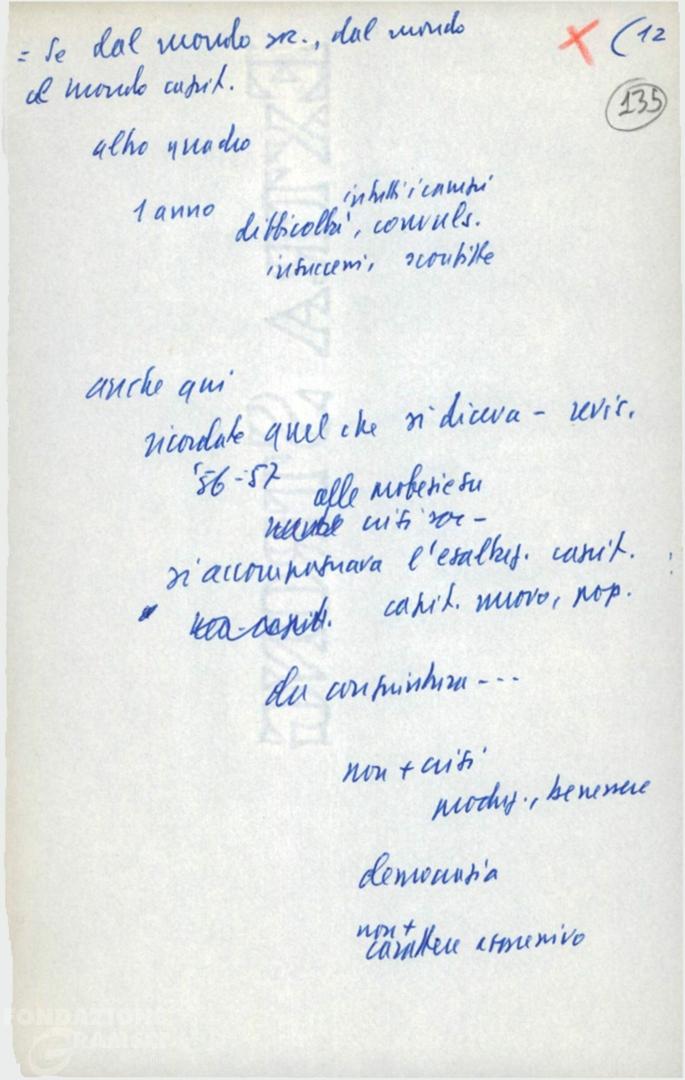 = Se dal mondo soc., dal mondo
al mondo capit.
(12
135
altro quadro
1 anno
in tutti i campi
difficoltà, convuls.
insuccessi, sconfitte
anche qui
ricordate quel che si diceva - revis.
'56-'57
alle prese su
crisi soc -
si accompagnava l'esaltaz. capit.
capit. nuovo, pop.
da congiuntura ---
non + crisi
produz., benessere
democrazia
non +
carattere aggressivo
FONDAZIONE
GRAMSCI